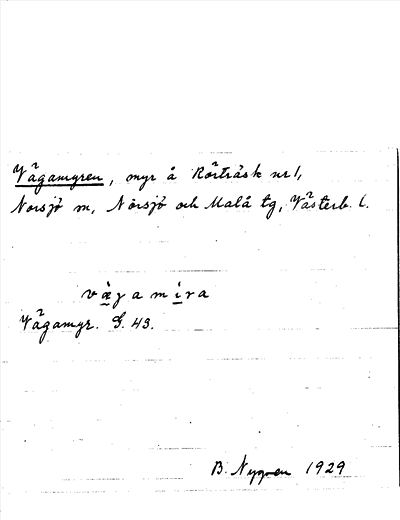 Vägamyren, myr å Rörträsk nr 1,
Norsjö sn, Norsjö och Malå tg, Västerb. l.
vä̀gamìra
Vägamyr. G. 43.
B. Nygren 1929